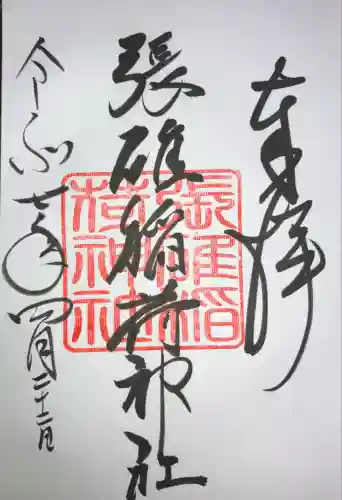 奉拝
張碓稲荷神社
令和七年四月二十二日
張碓稲
荷神社